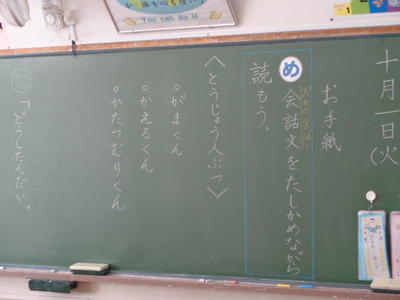 十月一日(火)
お手紙
め 会話文をたしかめながら
読もう。
〈とうじょうじんぶつ〉
○がまくん
○かえるくん
○かたつむりくん
「どうしたんだい、
You can do it.